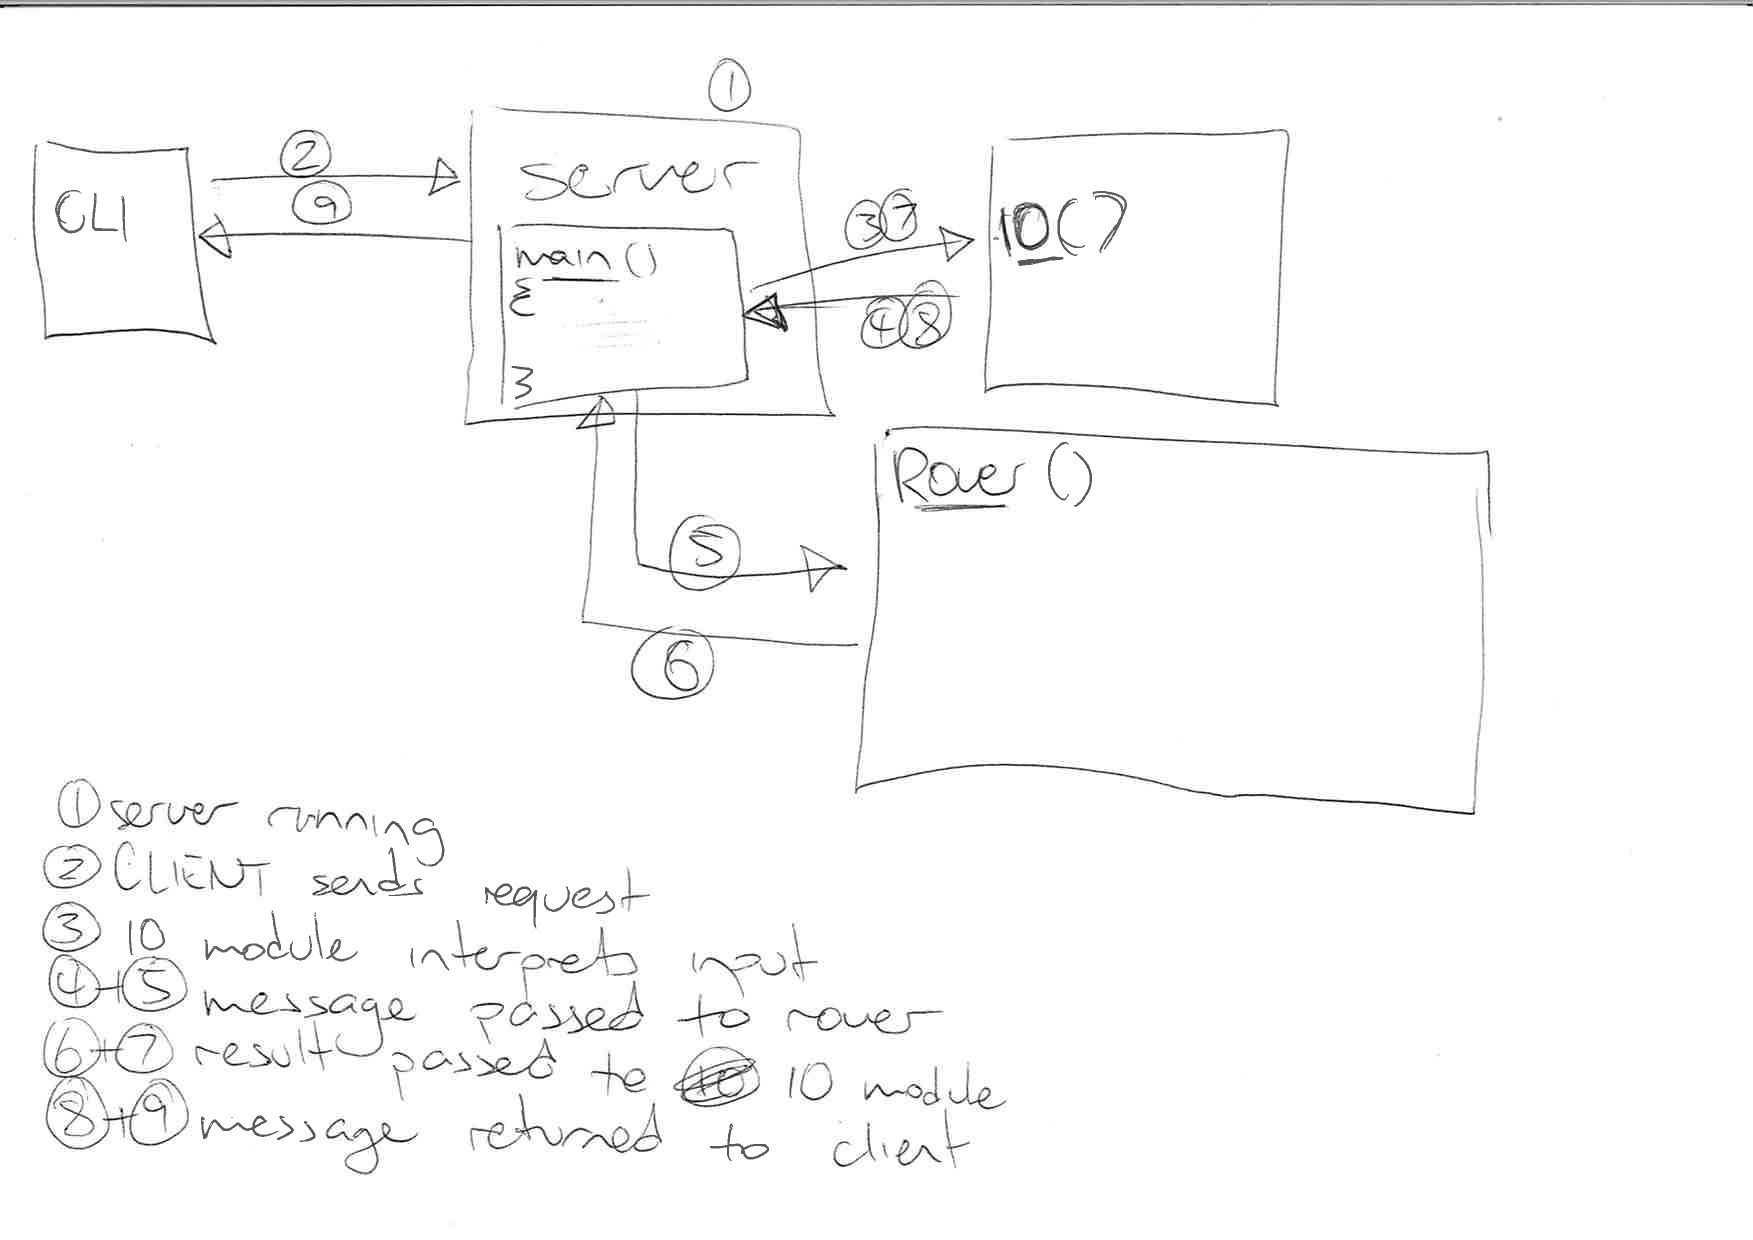 ①
CLI
②
⑨
server
main ()
{
}
③⑦
④⑧
IO()
Rover ()
⑤
⑥
① server running
② CLIENT sends request
③ IO module interprets input
④+⑤ message passed to rover
⑥+⑦ result passed to IO module
⑧+⑨ message returned to client